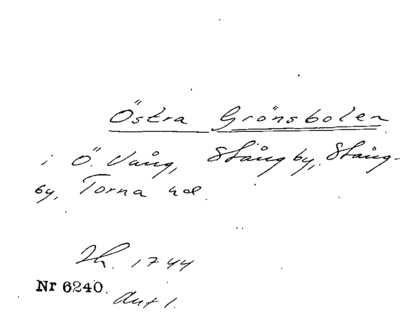 Östra Grönsbolen
i Ö. Vång, Stångby, Stång-
by, Torna hd.
Ih. 1744
Nr 6240.
Akt 1.